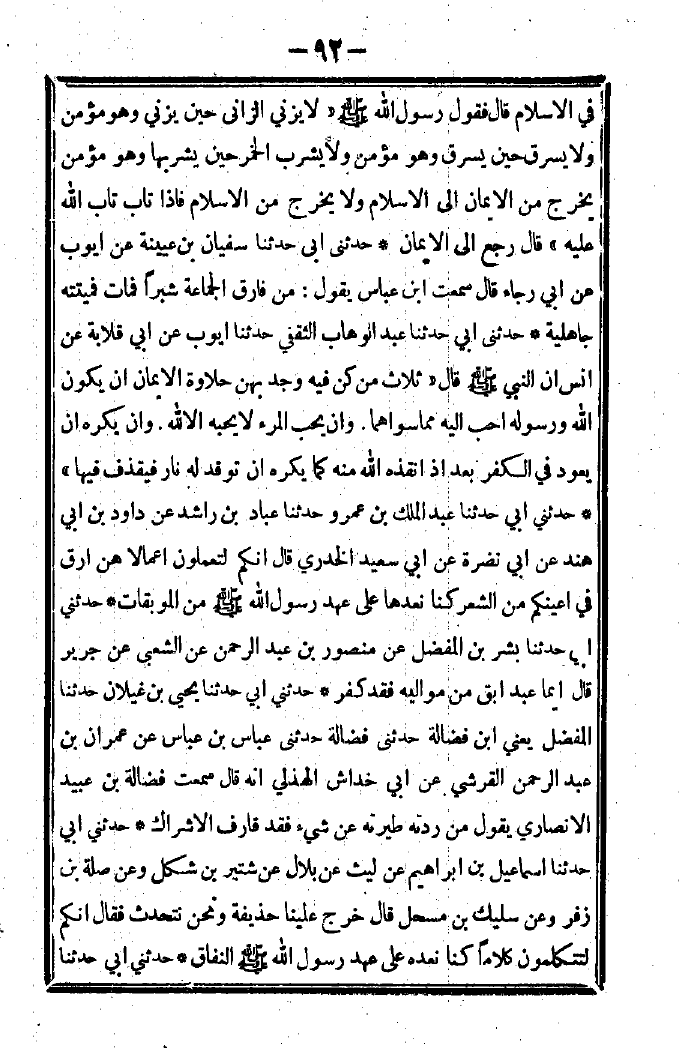 — ٩٢ —
في الاسلام قال فقول رسول الله ﷺ « لا يزني الزانى حين يزني وهو مؤمن
ولا يسرق حين يسرق وهو مؤمن ولا يشرب الخمر حين يشربها وهو مؤمن
يخرج من الايمان الى الاسلام ولا يخرج من الاسلام فاذا تاب تاب الله
عليه » قال رجع الى الايمان * حدثنى ابى حدثنا سفيان بن عيينة عن ايوب
عن ابي رجاء قال سمعت ابن عباس يقول : من فارق الجماعة شبراً فمات فميتته
جاهلية * حدثنى ابي حدثنا عبد الوهاب الثقفي حدثنا ايوب عن ابي قلابة عن
انس ان النبي ﷺ قال « ثلاث من كن فيه وجد بهن حلاوة الايمان ان يكون
الله ورسوله احب اليه مما سواهما . وان يحب المرء لا يحبه الا لله . وان يكره ان
يعود في الكفر بعد اذ انقذه الله منه كما يكره ان توقد له نار فيقذف فيها »
* حدثني ابي حدثنا عبد الملك بن عمرو حدثنا عباد بن راشد عن داود بن ابي
هند عن ابي نضرة عن ابي سعيد الخدري قال انكم لتعملون اعمالا هن ارق
في اعينكم من الشعر كنا نعدها على عهد رسول الله ﷺ من الموبقات * حدثني
ابي حدثنا بشر بن المفضل عن منصور بن عبد الرحمن عن الشعبي عن جرير
قال ايما عبد ابق من مواليه فقد كفر * حدثني ابي حدثنا يحيى بن غيلان حدثنا
المفضل يعني ابن فضالة حدثنى فضالة حدثنى عباس بن عباس عن عمران بن
عبد الرحمن القرشي عن ابي خداش الهذلي انه قال سمعت فضالة بن عبيد
الانصاري يقول من ردته طيرته عن شيء فقد قارف الاشراك * حدثني ابي
حدثنا اسماعيل بن ابراهيم عن ليث عن بلال عن شتير بن شكل وعن صلة بن
زفر وعن سليك بن مسحل قال خرج علينا حذيفة ونحن نتحدث فقال انكم
لتتكلمون كلاماً كنا نعده على عهد رسول الله ﷺ النفاق * حدثني ابي حدثنا